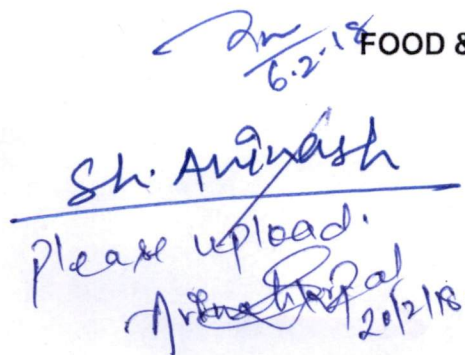 6.2.18 FOOD &
Sh. Avinash
please upload.
20/2/18